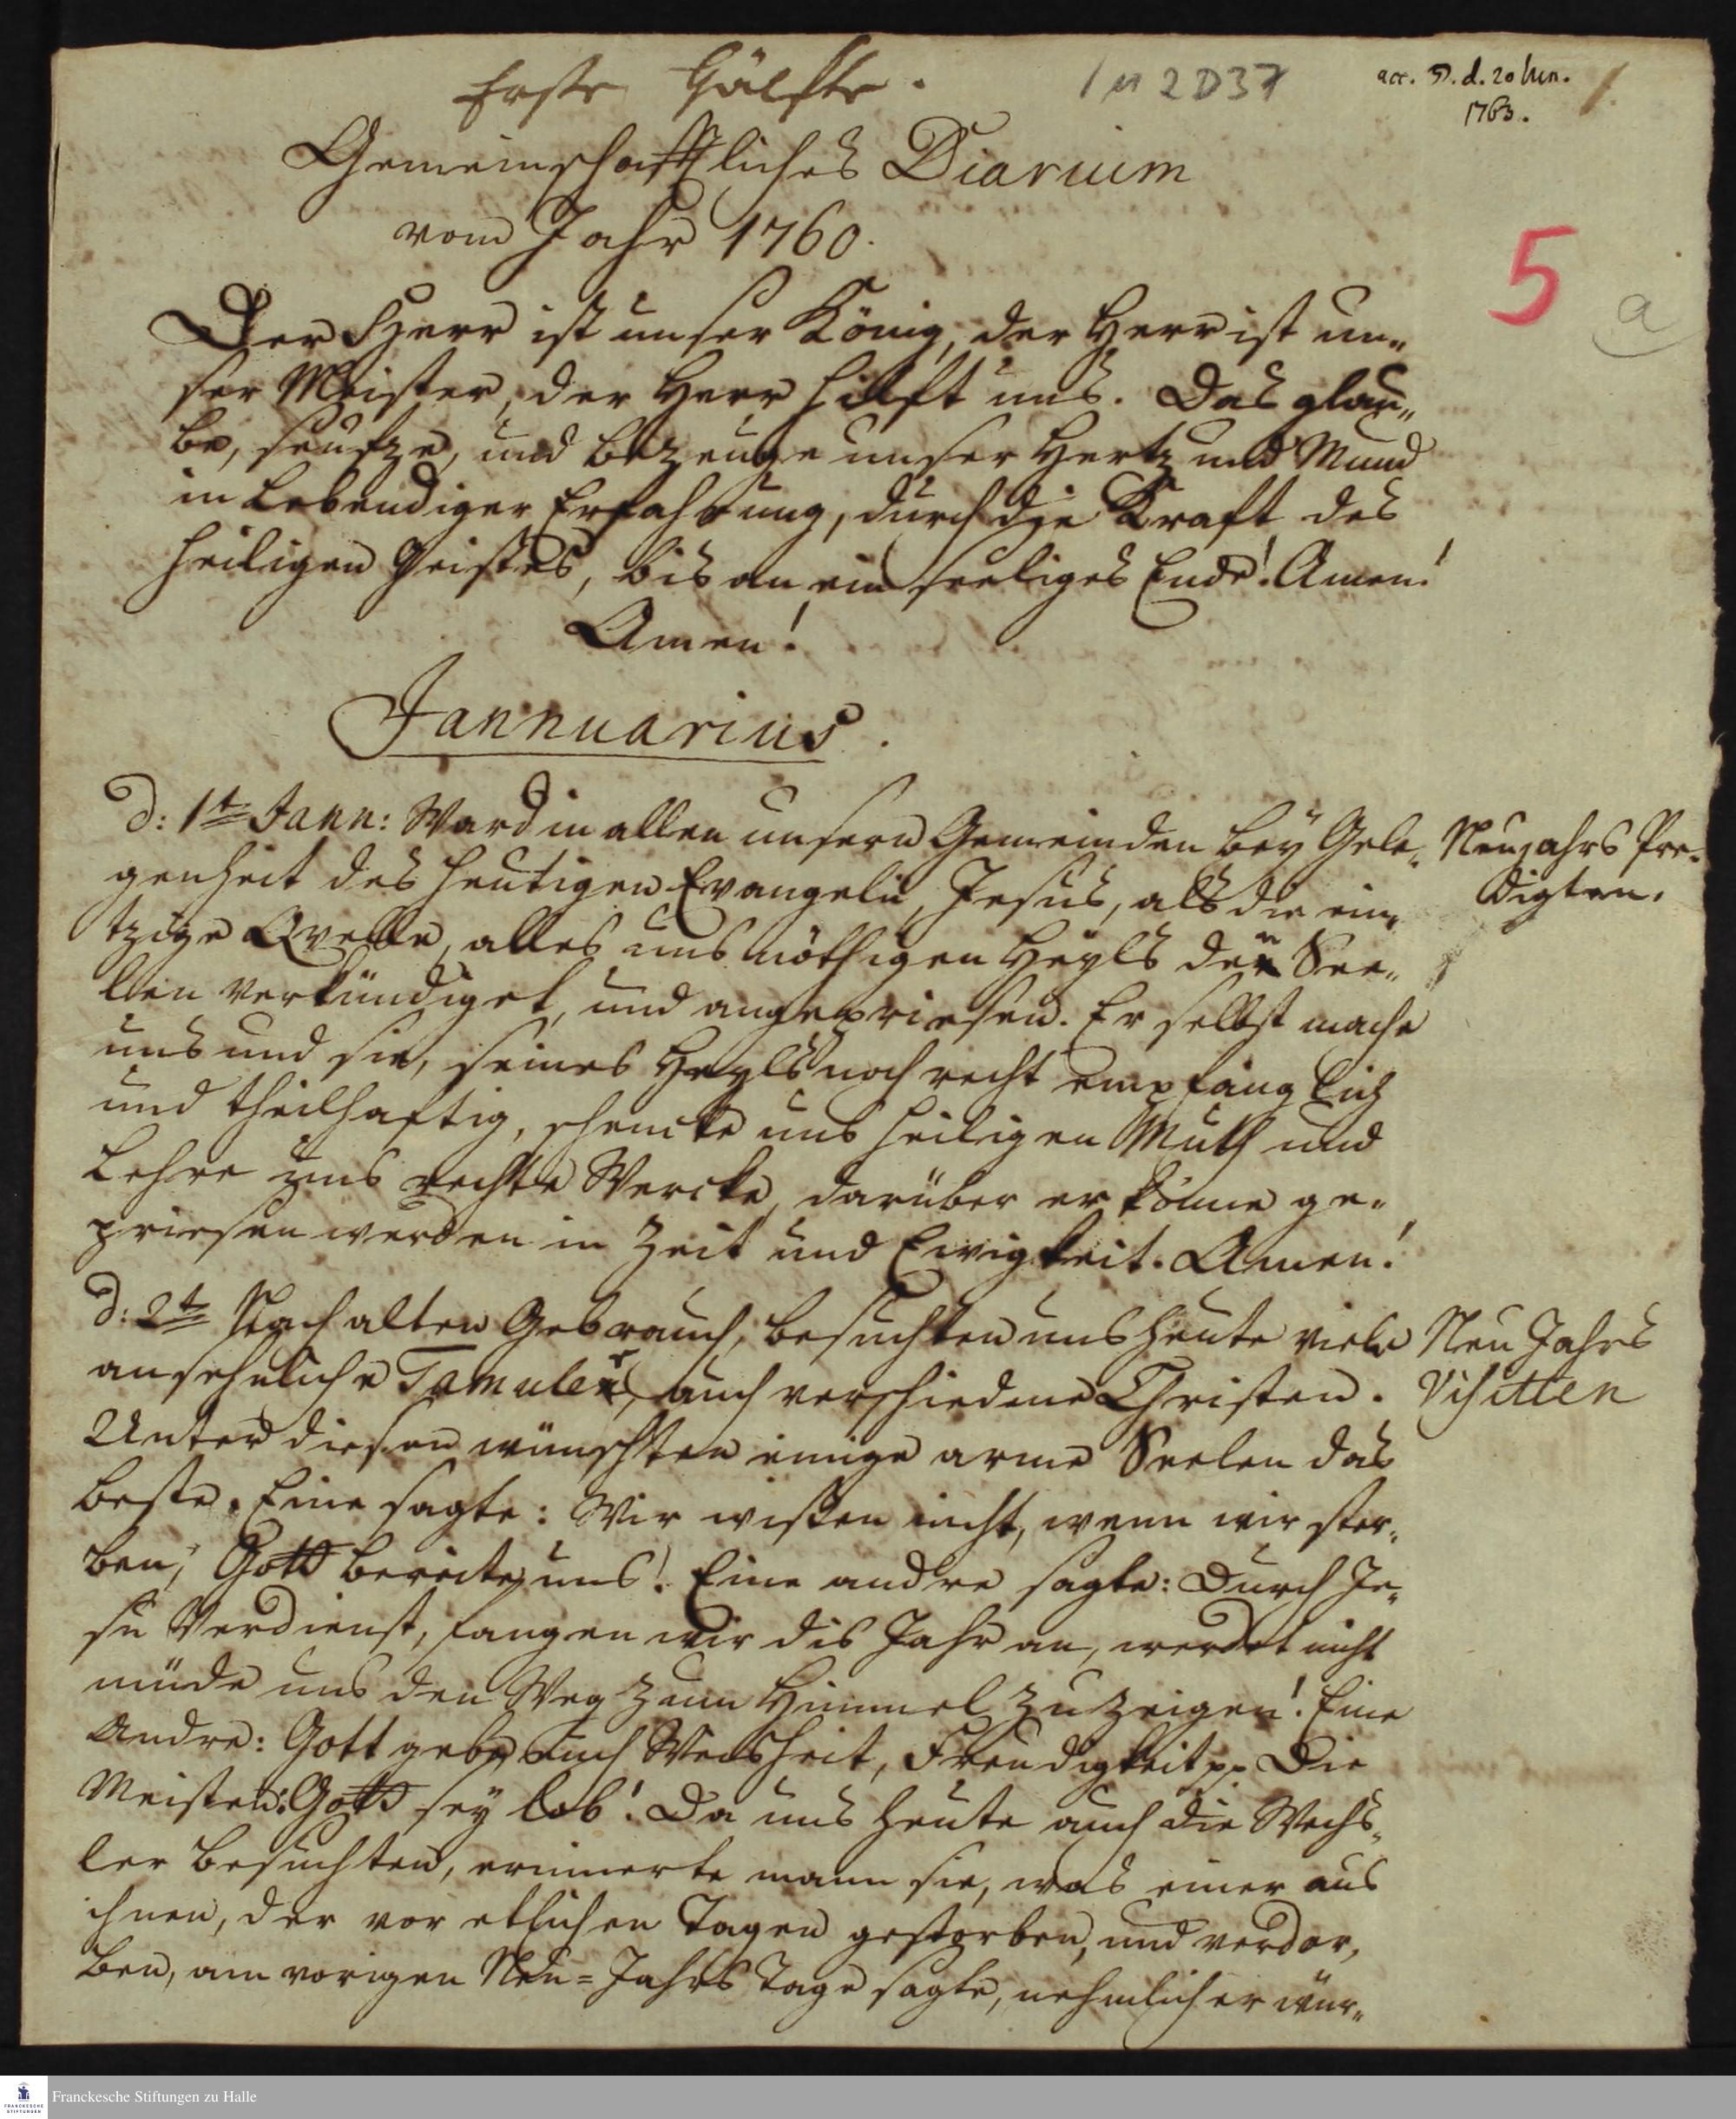 Erste Hälfte.
1M 2D37
acc. d. 20 Jun.
1763.
1.
5
a
Gemeinschafftliches Diarium
vom Jahr 1760.
Der Herr ist unser König, der Herr ist un-
ser Meister, der Herr hilft uns. Das glau-
be, seufze, und bezeuge unser Hertz und Mund
in lebendiger Erfahrung, durch die Kraft des
heiligen Geistes, bis an ein seeliges Ende! Amen!
Amen!
Jannuarius.
d: 1t Jann: Ward in allen unsern Gemeinden bey Gele-
genheit des heutigen Evangelii, Jesus, als die ein-
tzige Qvelle, alles uns nöthigen Heyls den See-
len verkündiget, und angepriesen. Er selbst mache
uns und sie, seines Heyls noch recht empfänglich
und theilhaftig, schencke uns heiligen Muth und
Lehre uns rechte Wercke, darüber er könne ge-
priesen werden in Zeit und Ewigkeit. Amen!
Neujahrs Pre-
digten.
d: 2t Nach alten Gebrauch, besuchten uns heute viele
ansehnliche Tamuler, auch verschiedene Christen.
Unter diesen wünschten einige arme Seelen das
beste. Eine sagte: Wir wißen nicht, wenn wir ster-
ben, Gott bereite uns! Eine andre sagte: Durch Je-
su Verdienst, fangen wir dis Jahr an, werdet nicht
müde uns den Weg zum Himmel zu zeigen! Eine
Andre: Gott gebe euch Weisheit, Freudigkeit pp. Die
Meisten: Gott sey lob! Da uns heute auch die Wechs-
ler besuchten, erinnerte mann sie, was einer aus
ihnen, der vor etlichen Tagen gestorben, und verdor-
ben, am vorigen Neu-Jahrs Tage sagte, nehmlich er wür-
Neu Jahrs
Visitten
Franckesche Stiftungen zu Halle
FRANCKESCHE
STIFTUNGEN